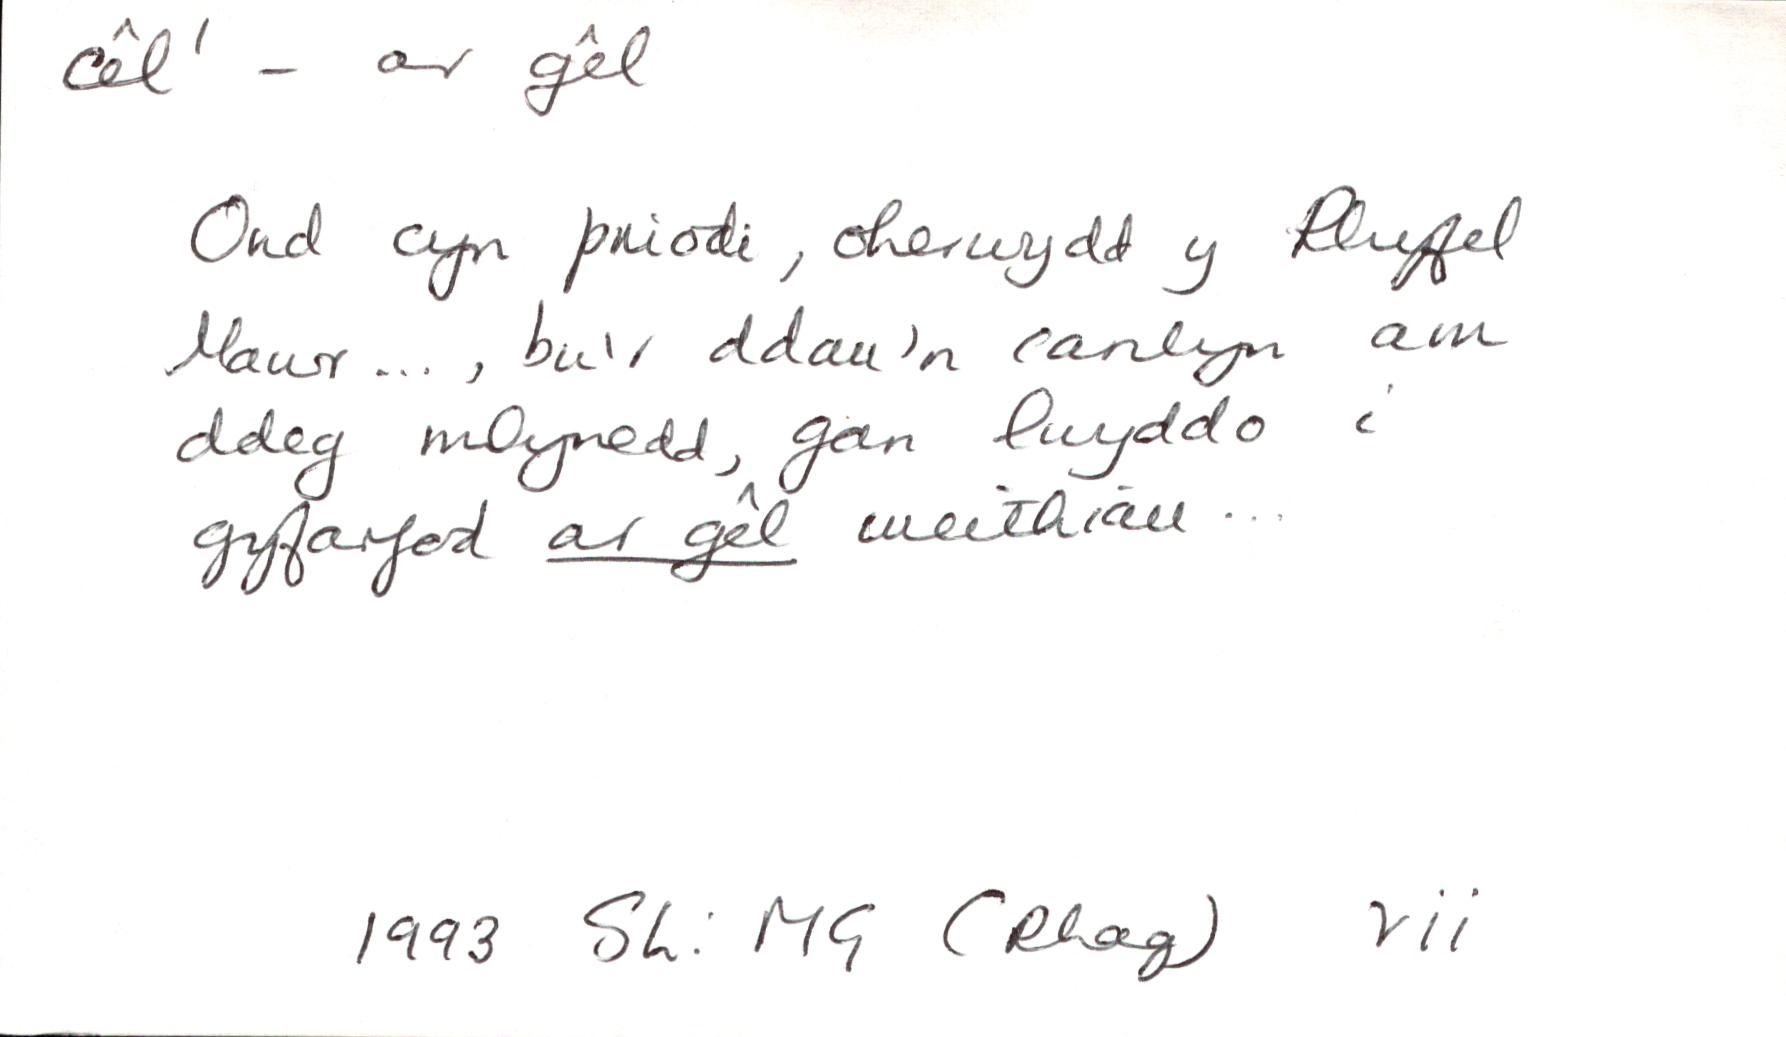 cêl¹ - ar gêl
Ond cyn priodi, oherwydd y Rhyfel
Mawr ..., bu'r ddau'n canlyn am
ddeg mlynedd, gan lwyddo i
gyfarfod ar gêl weithiau ...
1993 Sh: MG (Rhag) vii